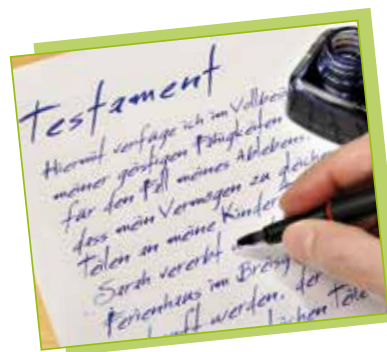 Testament
Hiermit verfüge ich im Vollbesi
meiner geistigen Fähigkeiten
für den Fall meines Ablebens,
dass mein Vermögen zu gleiche
Teilen an meine Kinder
Sarah vererbt
Ferienhaus im Breisg
werden, der
Teile